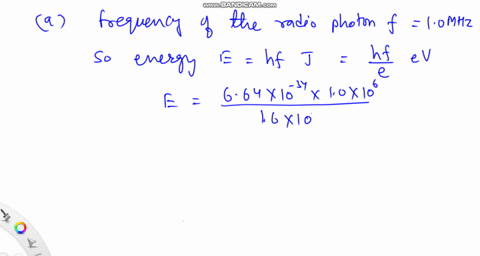 WWW.BANDICAM.COM
(a) frequency of the radio photon f = 1.0 MHz
So energy E = hf J = hf/e eV
E = 6.64 × 10^-34 × 1.0 × 10^6 / 1.6 × 10